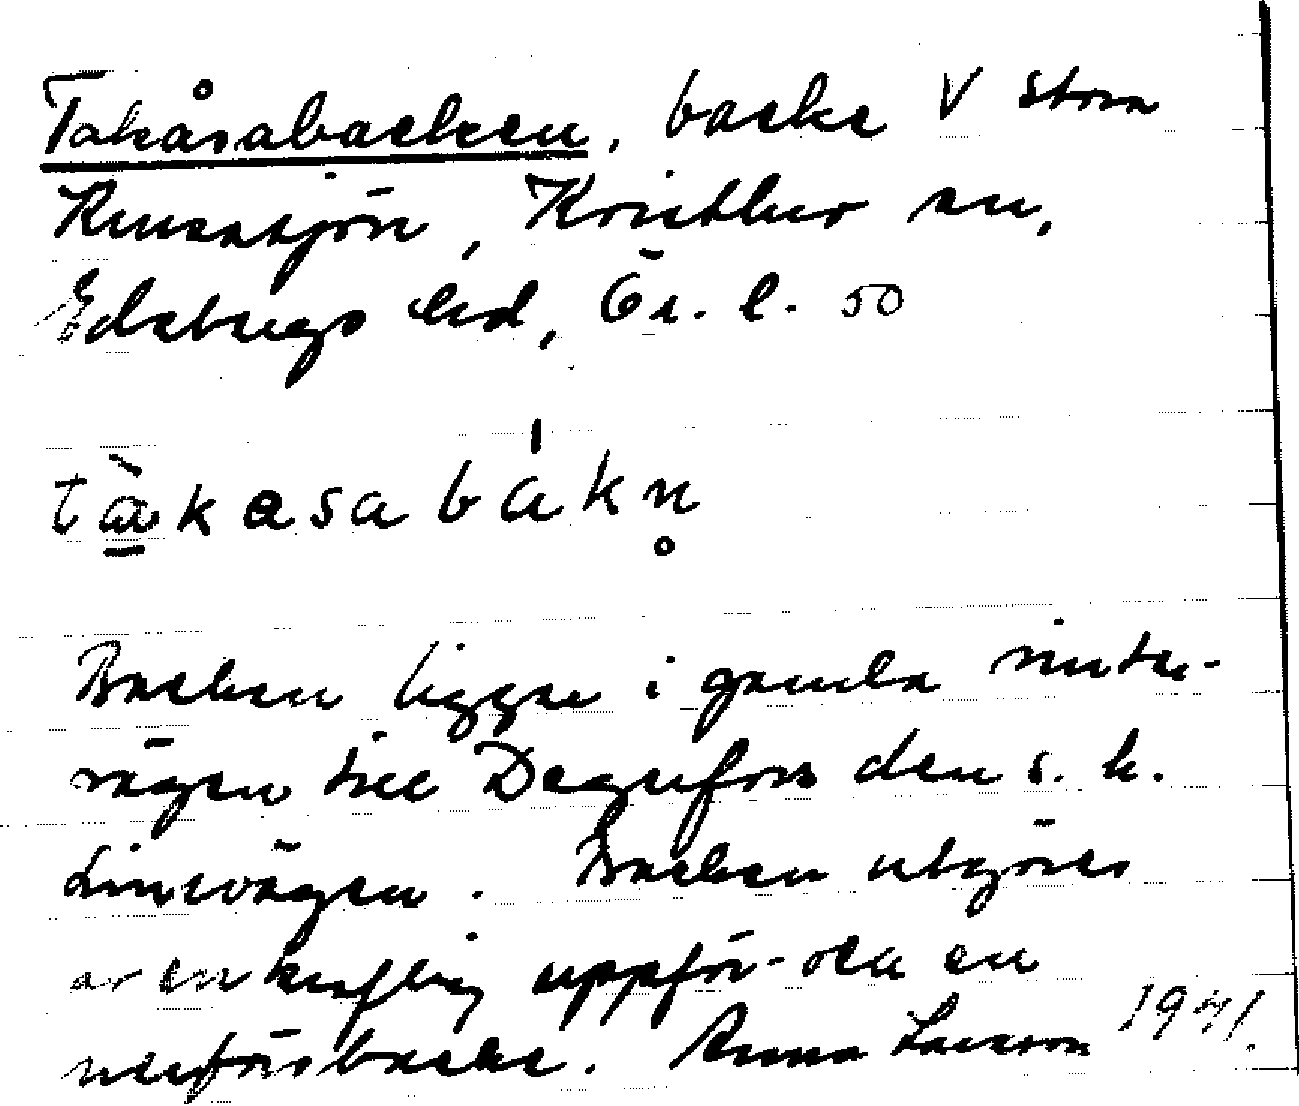 Takåsabacken, backe V Stora
Kumsasjön, Kristbus sn,
Edsbergs hd, Ör. l. 50
tàkasabákn̥
Backen ligger i gamla vinter-
vägen till Degerfors den s. k.
Linsvägen. Backen utgöres
av en kraftig uppför- och en
nerförsbacke. Anna Larsson 1941.